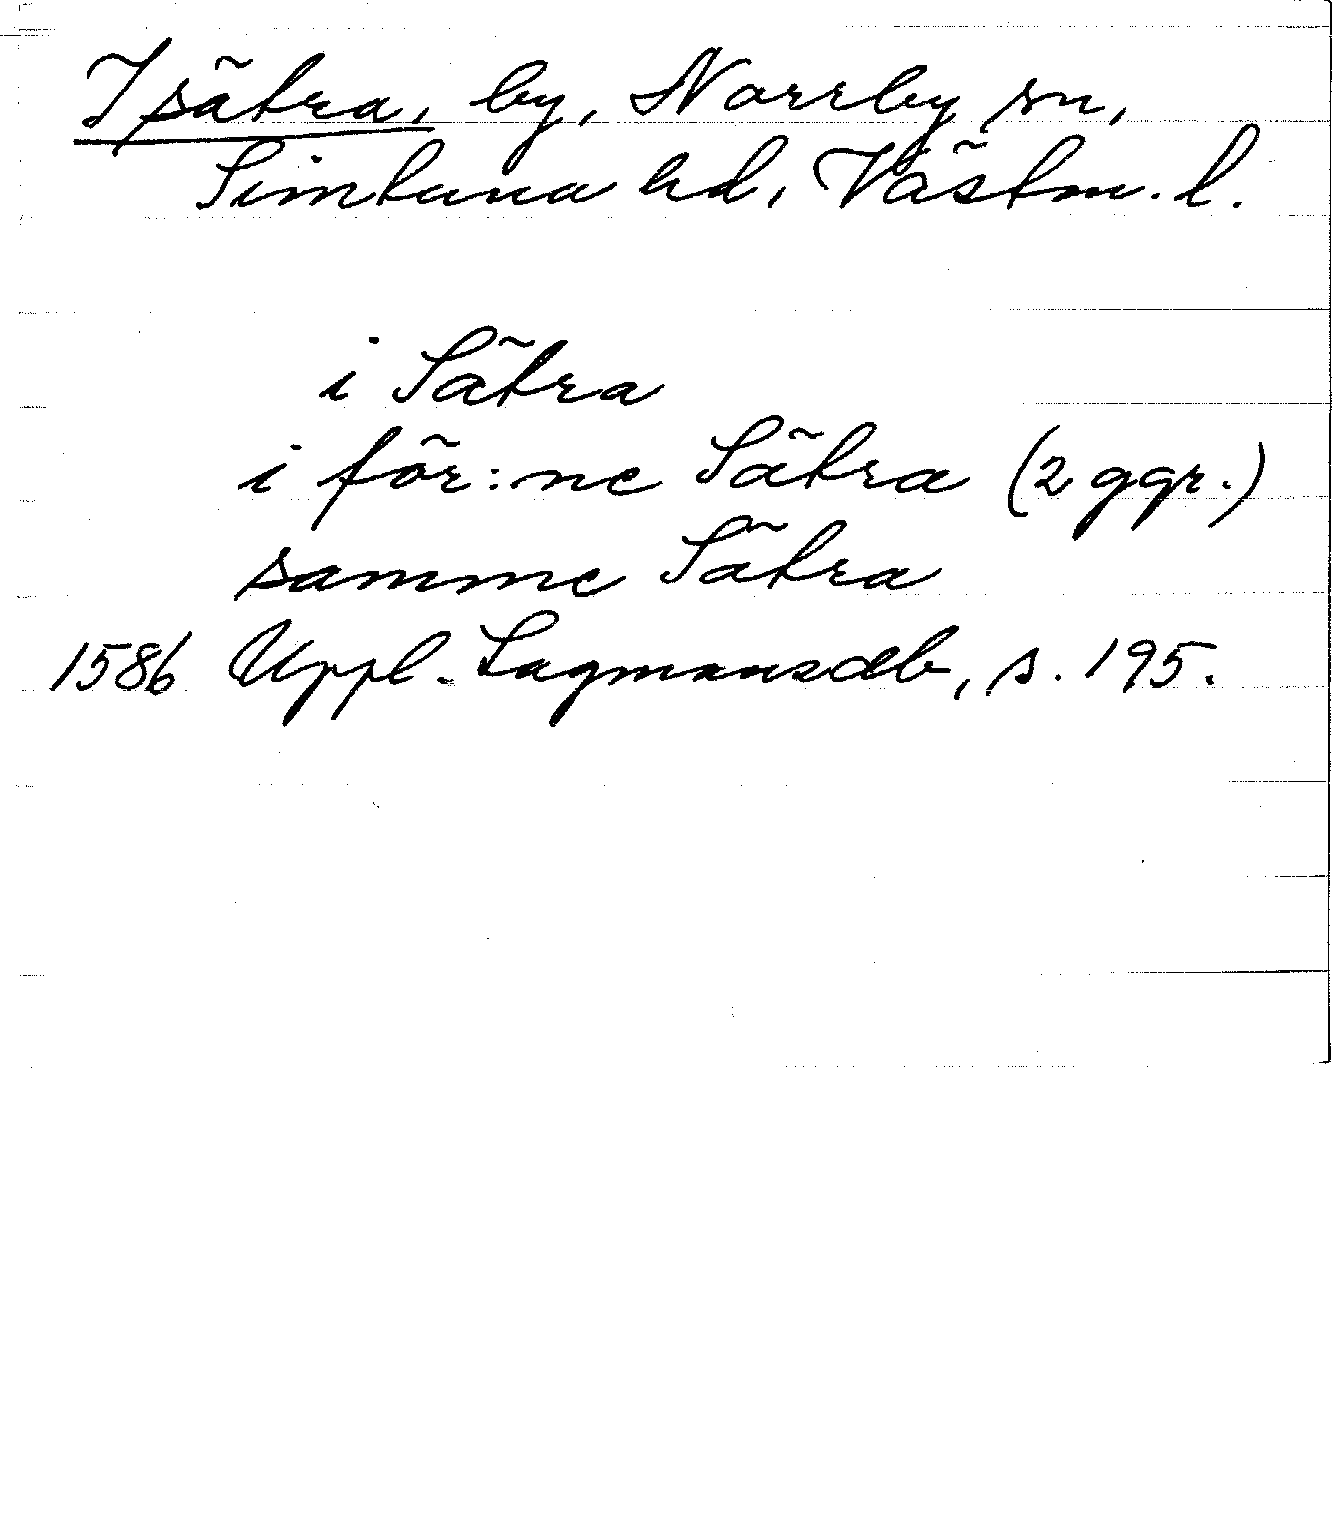 Isätra, by, Norrby sn,
Simtuna hd, Västm. l.
i Sätra
i för:ne Sätra (2 ggr.)
samme Sätra
1586 Uppl. Lagmansdb, s. 195.